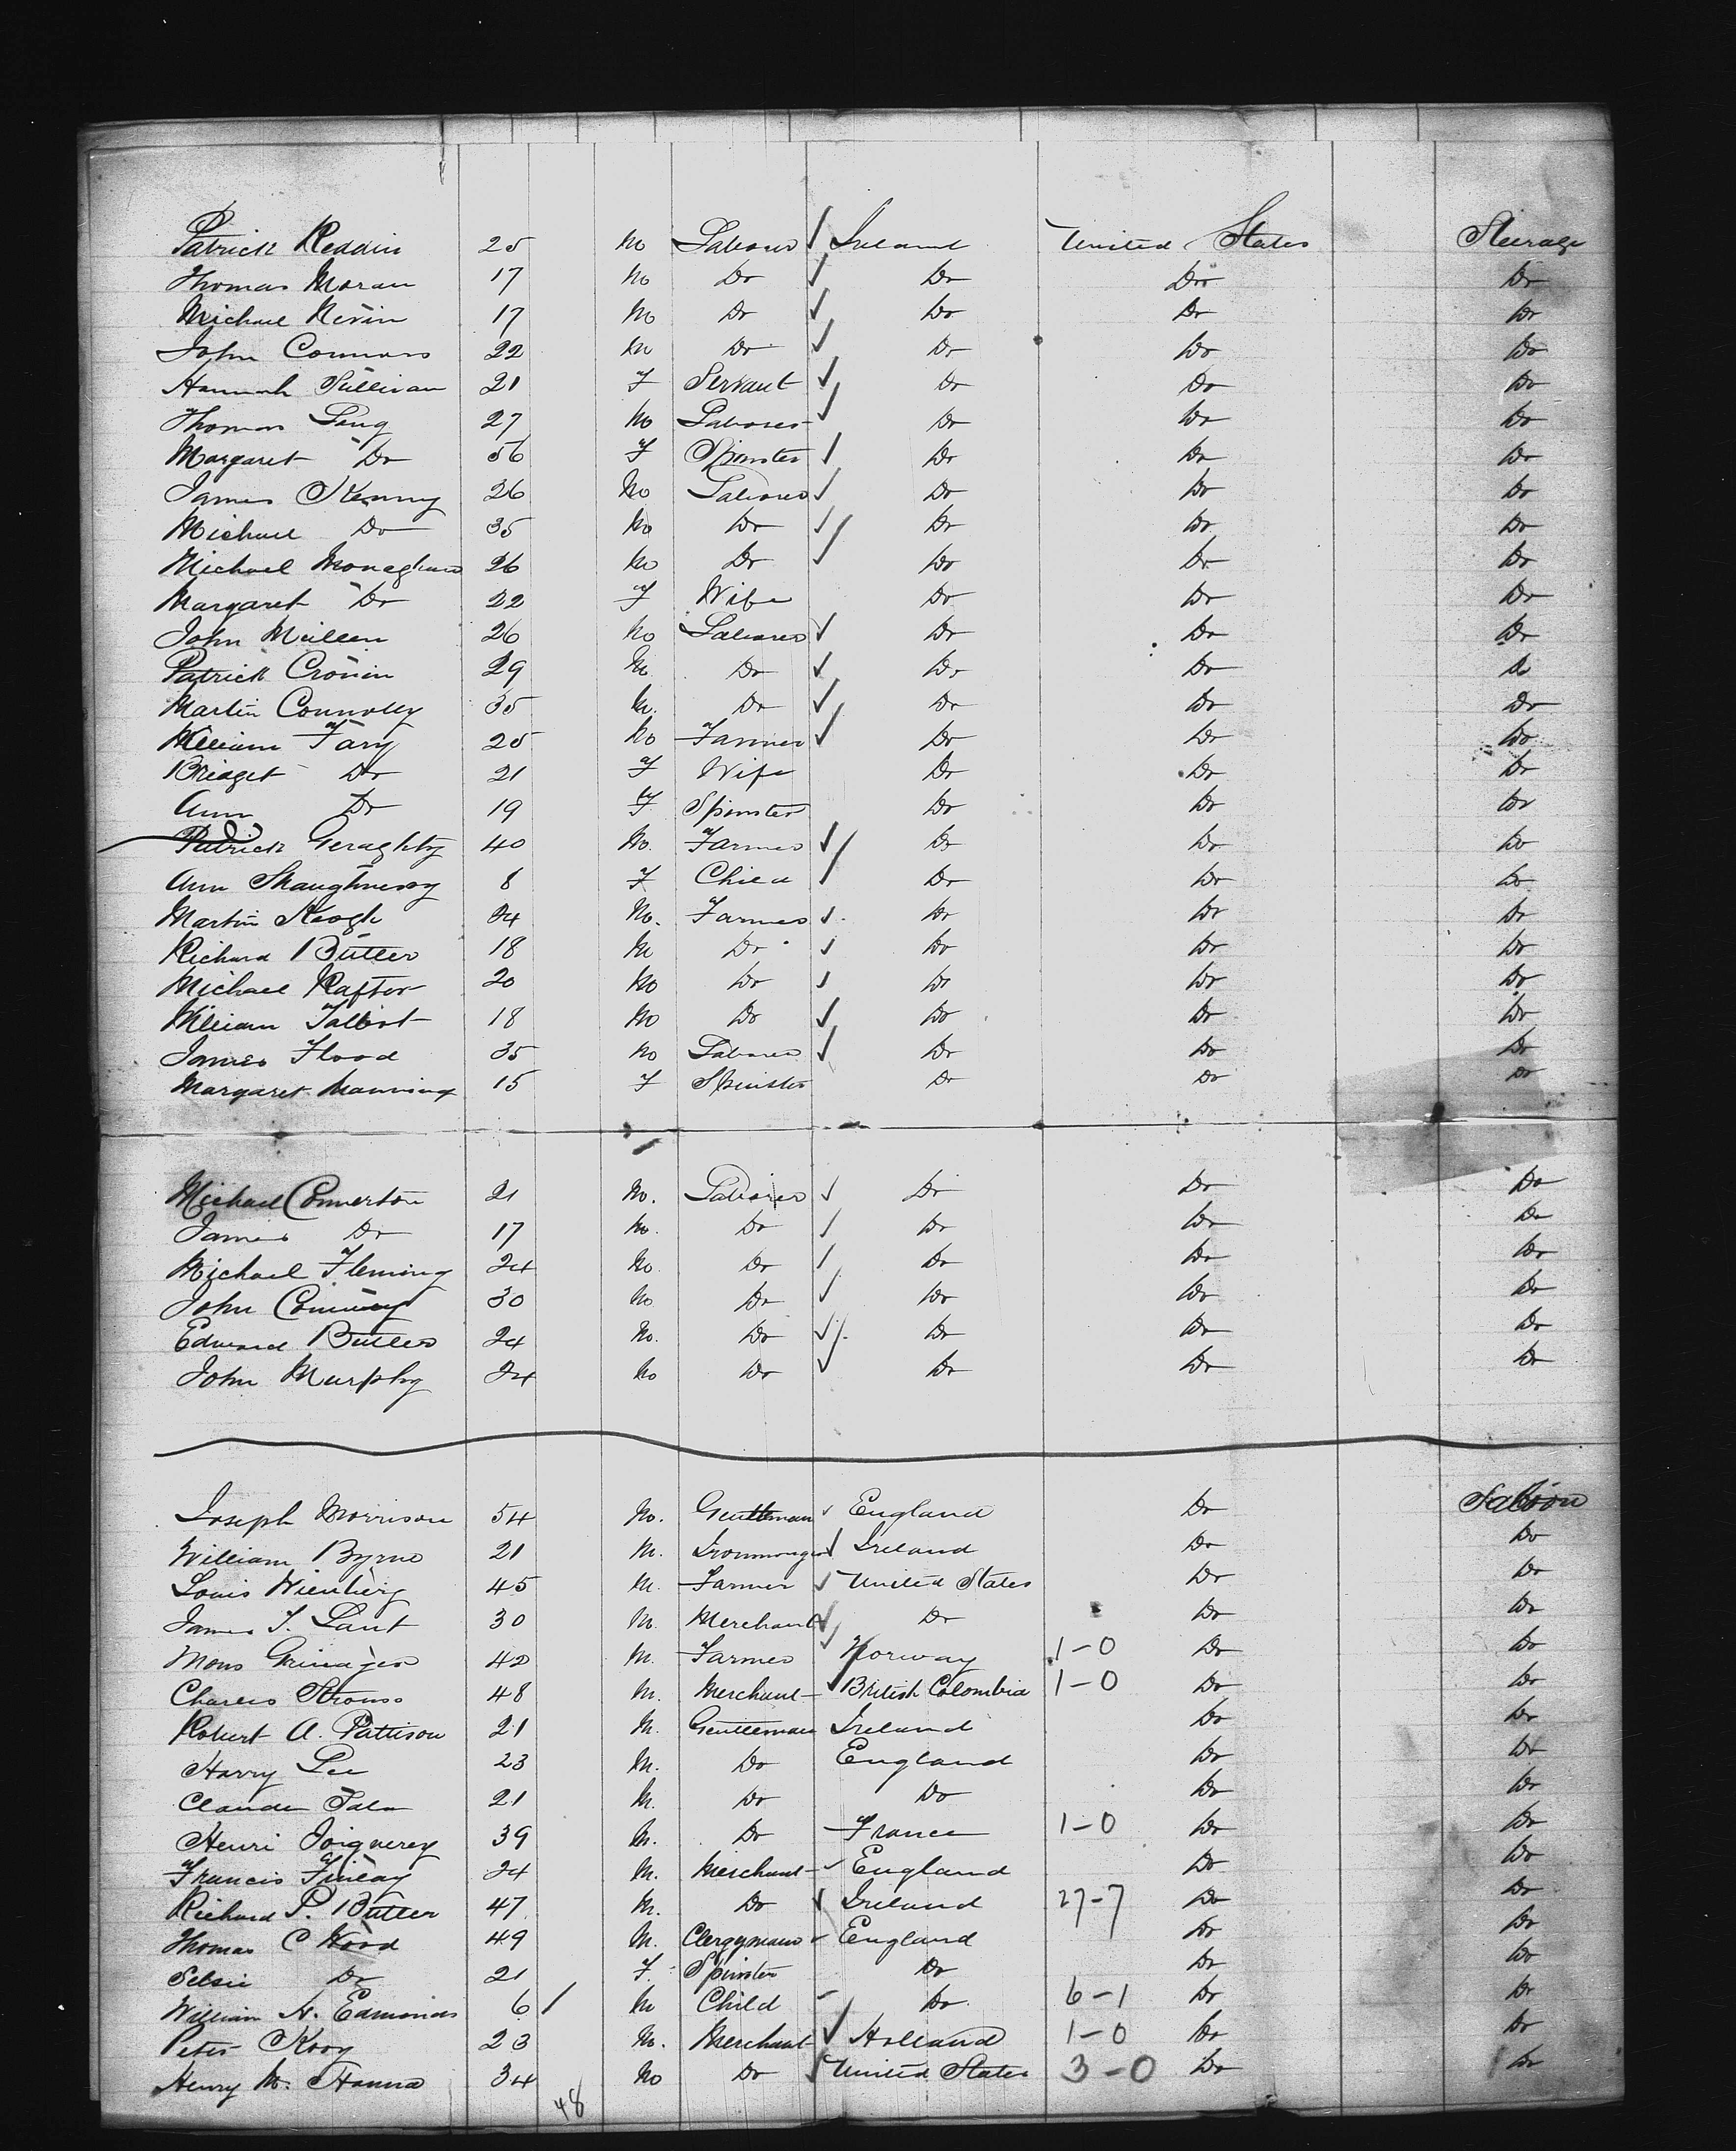 Patrick Reddin 25 M Laborer Ireland United States Steerage
Thomas Moran 17 M Do Do Do Do
Michael Nevin 17 M Do Do Do Do
John Connors 22 M Do Do Do Do
Hannah Sullivan 21 F Servant Do Do Do
Thomas Long 27 M Laborer Do Do Do
Margaret Do 56 F Spinster Do Do Do
James Kenny 26 M Laborer Do Do Do
Michael Do 35 M Do Do Do Do
Michael Monaghan 26 M Do Do Do Do
Margaret Do 22 F Wife Do Do Do
John Mullen 26 M Laborer Do Do Do
Patrick Cronin 29 M Do Do Do Do
Martin Connolly 35 M. Do Do Do Do
William Fary 25 M Farmer Do Do Do
Bridget Do 21 F Wife Do Do Do
Ann Do 19 F Spinster Do Do Do
Patrick Geraghty 40 M. Farmer Do Do Do
Ann Shaughnessy 8 F Child Do Do Do
Martin Keogh 24 M. Farmer Do Do Do
Richard Butler 18 M Do Do Do Do
Michael Rafter 20 M Do Do Do Do
William Talbot 18 M Do Do Do Do
James Flood 35 M Laborer Do Do Do
Margaret Manning 15 F Spinster Do Do Do
Michael Connerton 21 M. Laborer Do Do Do
James Do 17 M. Do Do Do Do
Michael Fleming 24 M. Do Do Do Do
John 30 M Do Do Do Do
Edward Butler 24 M. Do Do Do Do
John Murphy 24 M Do Do Do Do
Joseph Morrison 54 M. Gentleman England Do Saloon
William Byrne 21 M. Ironmonger Ireland Do Do
Louis Wienberg 45 M. Farmer United States Do Do
James T. Lant 30 M. Merchant Do Do Do
Mons 42 M. Farmer Norway 1-0 Do Do
Charles Strouss 48 M. Merchant British Colombia 1-0 Do Do
Robert A. Pattison 21 M. Gentleman Ireland Do Do
Harry Lee 23 M. Do England Do Do
Claude 21 M. Do Do Do Do
Henri Joignerey 39 M. Do France 1-0 Do Do
Francis Finlay 24 M. Merchant England Do Do
Richard P. Butler 47 M. Do Ireland 27-7 Do Do
Thomas C Wood 49 M. Clergyman England Do Do
Do 21 F. Spinster Do Do Do
William H. Edmonds 6 / M Child Do 6-1 Do Do
Peter Kooy 23 M. Merchant Holland 1-0 Do Do
Henry M. Hanna 34 M Do United States 3-0 Do Do
48